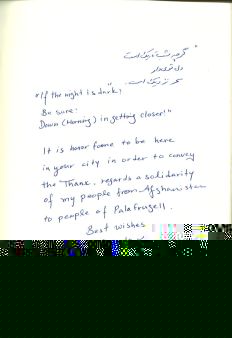 گرچه شب تاریک است
دل قوی دار
سحر نزدیک است
"If the night is dark,
Be sure.
Dawn (Morning) is getting closer!"
It is honor for me to be here
in your city in order to convey
the Thank, regards a solidarity
of my people from Afghanistan
to people of Palafrugell.
Best wishes